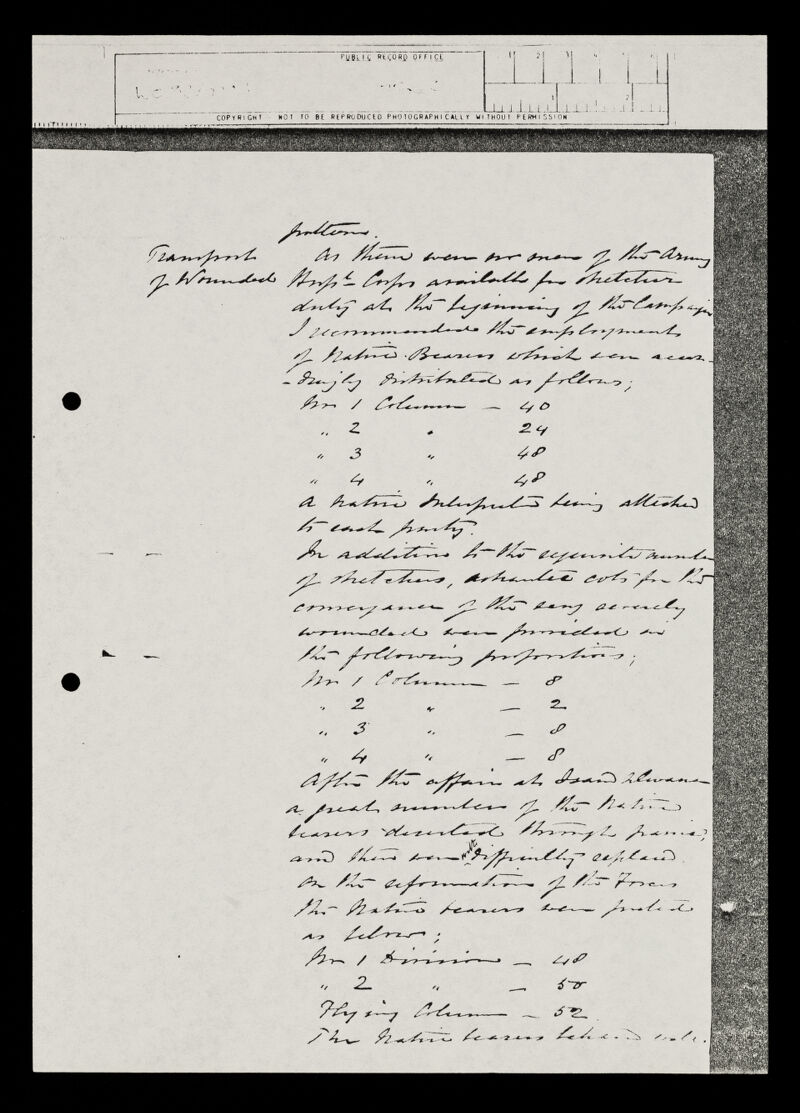 PUBLIC RECORD OFFICE
1 2 3 4 5 6
1 2
COPYRIGHT NOT TO BE REPRODUCED PHOTOGRAPHICALLY WITHOUT PERMISSION
pattern.
Transport
of Wounded
As there were no men of the Army
Hospl Corps available for stretcher
duty at the beginning of the Campaign
I recommended the employment
of Native Bearers which were accor-
-dingly distributed as follows;
No 1 Column — 40
" 2 " 24
" 3 " 48
" 4 " 48
A native Interpreter being attached
to each party.
In addition to the requisite number
of stretchers, ashantee cots for the
conveyance of the very severely
wounded were provided in
the following proportions;
No 1 Column — 8
" 2 " — 2
" 3 " — 8
" 4 " — 8
After the affair at Isandlwana
a great number of the Native
bearers deserted through panic,
and these were with difficulty replaced.
On the reformation of the Forces
the Native bearers were posted
as below;
No 1 Division — 48
" 2 " — 50
Flying Column — 52.
The Native bearers behaved well.